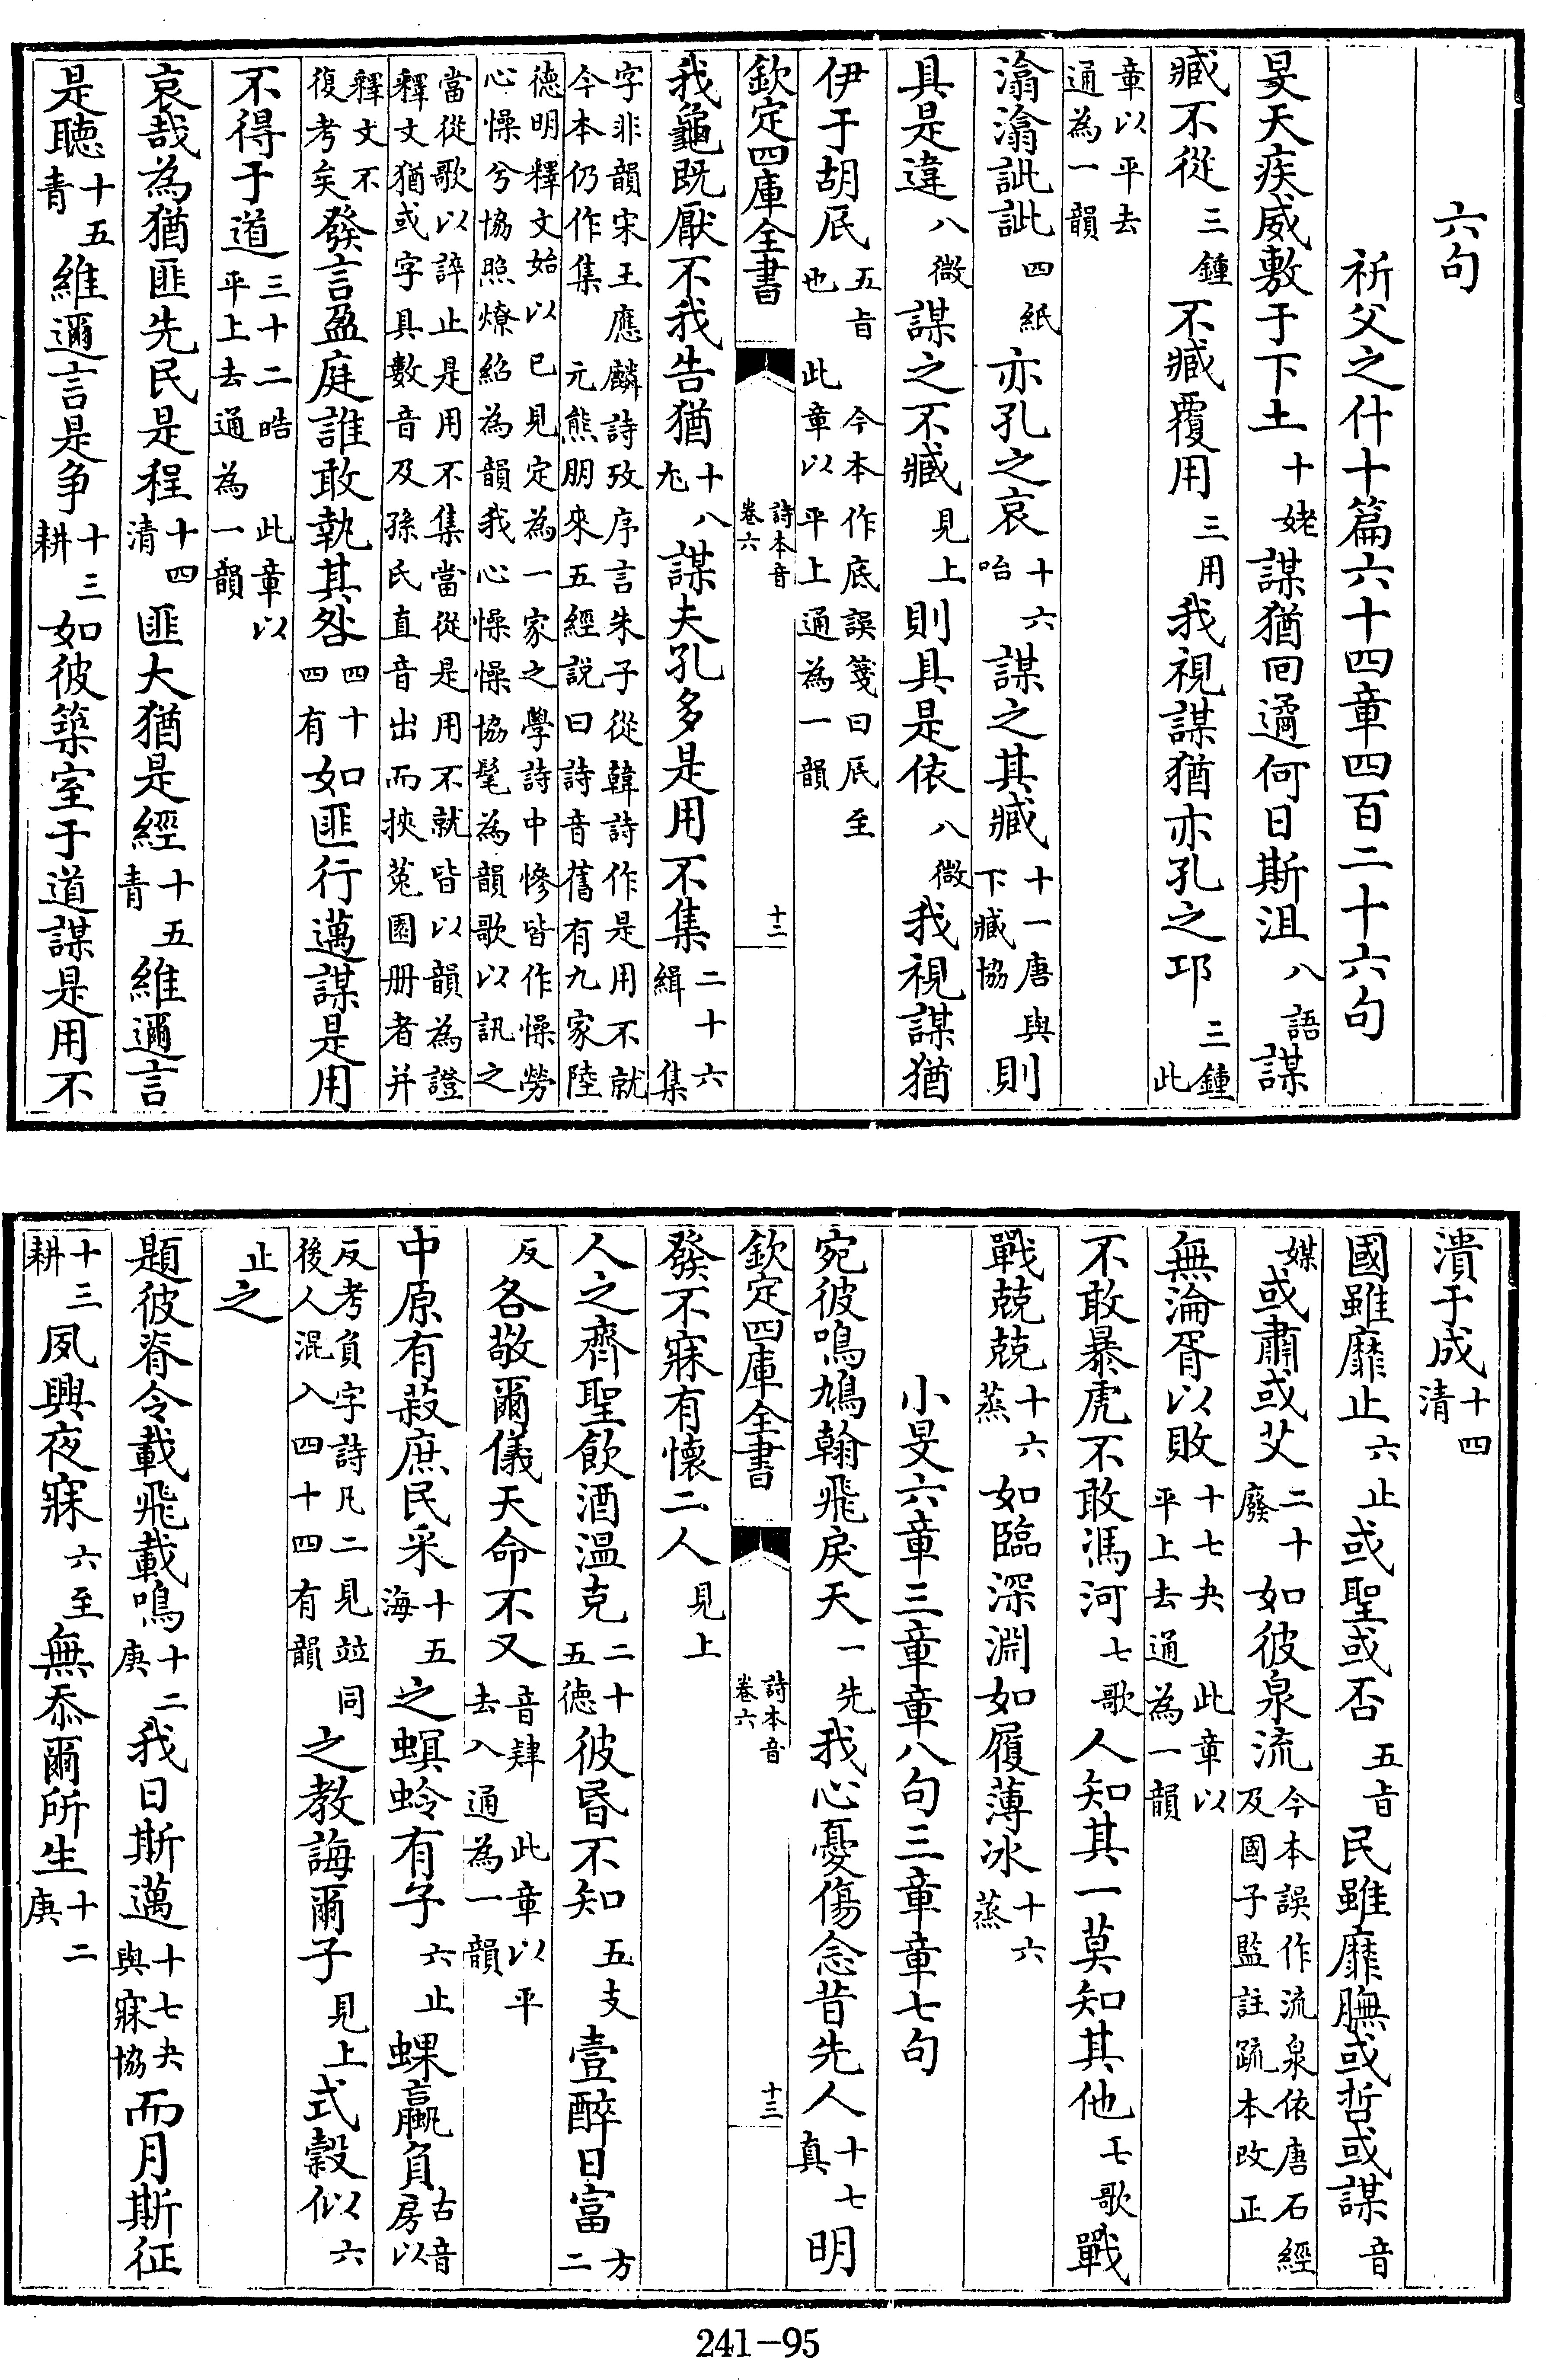 六句
祈父之什十篇六十四章四百二十六句
旻天疾威敷于下土十姥謀猶回遹何日斯沮八語謀
臧不從三鍾不臧覆用三用我視謀猶亦孔之邛三鍾此
章以平去通為一韻
潝潝訿訿四紙亦孔之哀十六咍謀之其臧十一唐與下臧協則
具是違八微謀之不臧見上則具是依八微我視謀猶
伊于胡厎五旨 今本作底誤箋曰厎至也 此章以平上通為一韻
欽定四庫全書 詩本音卷六 十二
我龜既厭不我告猶十八尤謀夫孔多是用不集二十六緝 集
字非韻宋王應麟詩攷序言朱子從韓詩作是用不就今本仍作集 元熊朋來五經説曰詩音舊有九家陸
德明釋文始以已見定為一家之學詩中慘皆作懆勞心懆兮協照燎紹為韻我心懆懆協髦為韻歌以訊之
當從歌以誶止是用不集當從是用不就皆以韻為證釋文猶或字具數音及孫氏直音出而挾菟園册者并
釋文不復考矣發言盈庭誰敢執其咎四十四有如匪行邁謀是用
不得于道三十二皓 此章以平上去通為一韻
哀哉為猶匪先民是程十四清匪大猶是經十五青維邇言
是聽十五青維邇言是争十三耕如彼築室于道謀是用不
潰于成十四清
國雖靡止六止或聖或否五旨民雖靡膴或哲或謀音
媒或肅或艾二十廢如彼泉流今本誤作流泉依唐石經及國子監註疏本改正
無淪胥以敗十七夬 此章以平上去通為一韻
不敢暴虎不敢馮河七歌人知其一莫知其他七歌戰
戰兢兢十六蒸如臨深淵如履薄冰十六蒸
小旻六章三章章八句三章章七句
宛彼鳴鳩翰飛戾天一先我心憂傷念昔先人十七真明
欽定四庫全書 詩本音卷六 十三
發不寐有懷二人見上
人之齊聖飲酒溫克二十五德彼昏不知五支壹醉日富方二
反各敬爾儀天命不又音肄 此章以平去入通為一韻
中原有菽庶民采十五海之螟蛉有子六止蜾蠃負古音房以
反考負字詩凡二見竝同後人混入四十四有韻之教誨爾子見上式穀似以六
止之
題彼脊令載飛載鳴十二庚我日斯邁十七夬與寐協而月斯征
十三耕夙興夜寐六至無忝爾所生十二庚
241-95